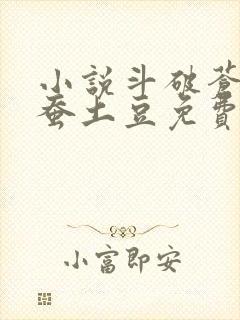 小說斗破蒼
蚕土豆免費
小富即安